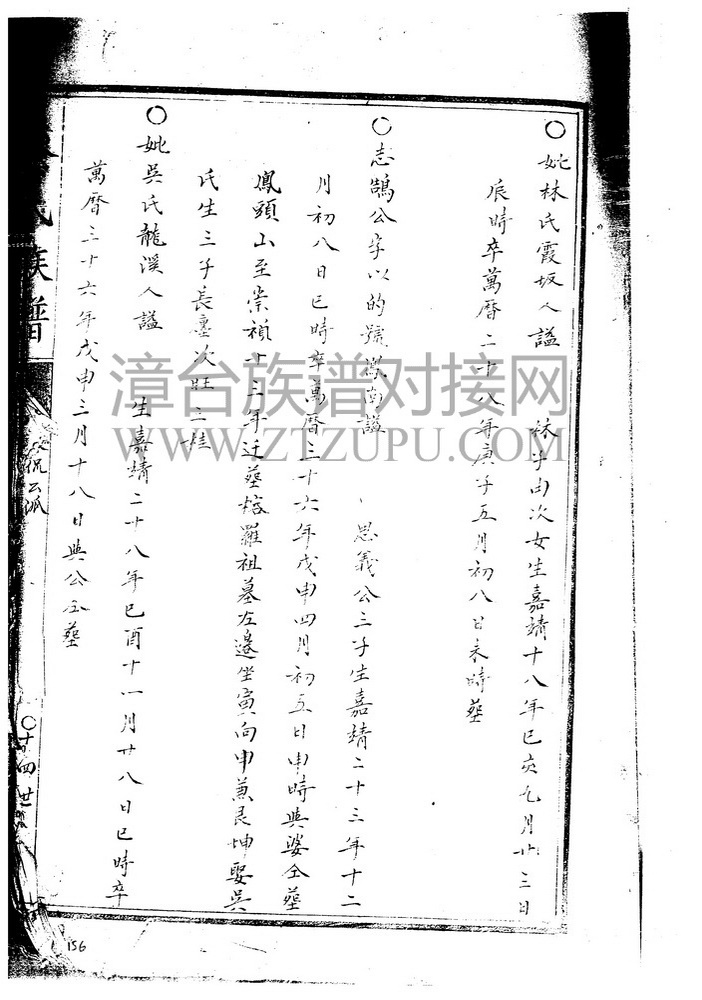 〇妣林氏霞坂人謚 林子由次女生嘉靖十八年巳亥九月廿三日
辰時卒萬曆二十八年庚子五月初八日未時葬
〇志鵠公字以的號 南謚 思義公三子生嘉靖二十三年十二
月初八日巳時卒萬曆三十六年戊申四月初五日申時與婆仝葬
鳳頭山至崇禎十三年迁葬 羅祖墓左邊坐寅向申兼艮坤娶吳
氏生三子長 次旺三桂
〇妣吳氏龍溪人謚 生嘉靖二十八年巳酉十一月廿八日巳時卒
萬曆三十六年戊申三月十八日與公仝葬
氏族譜
公派
〇十四世
156
漳台族谱对接网
WWW.ZTZUPU.COM